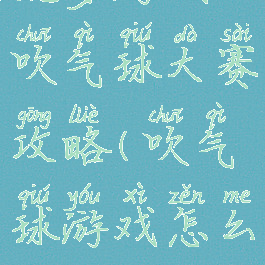 chuī qì qiú dà sài
吹气球大赛
gōng lüè chuī qì
攻略(吹气
qiú yóu xì zěn me
球游戏怎么